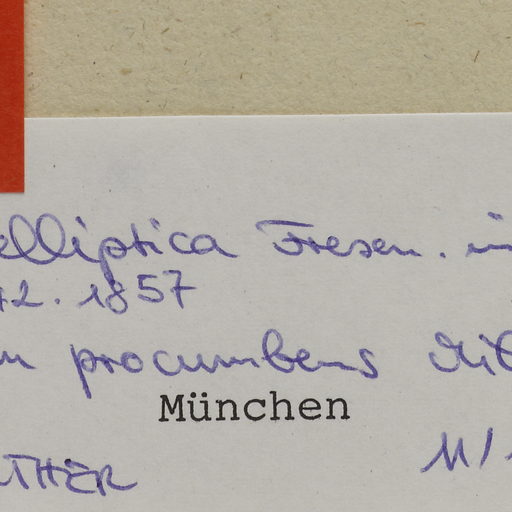 elliptica Fresen. in
42. 1857
procumbens
München
THER
11/